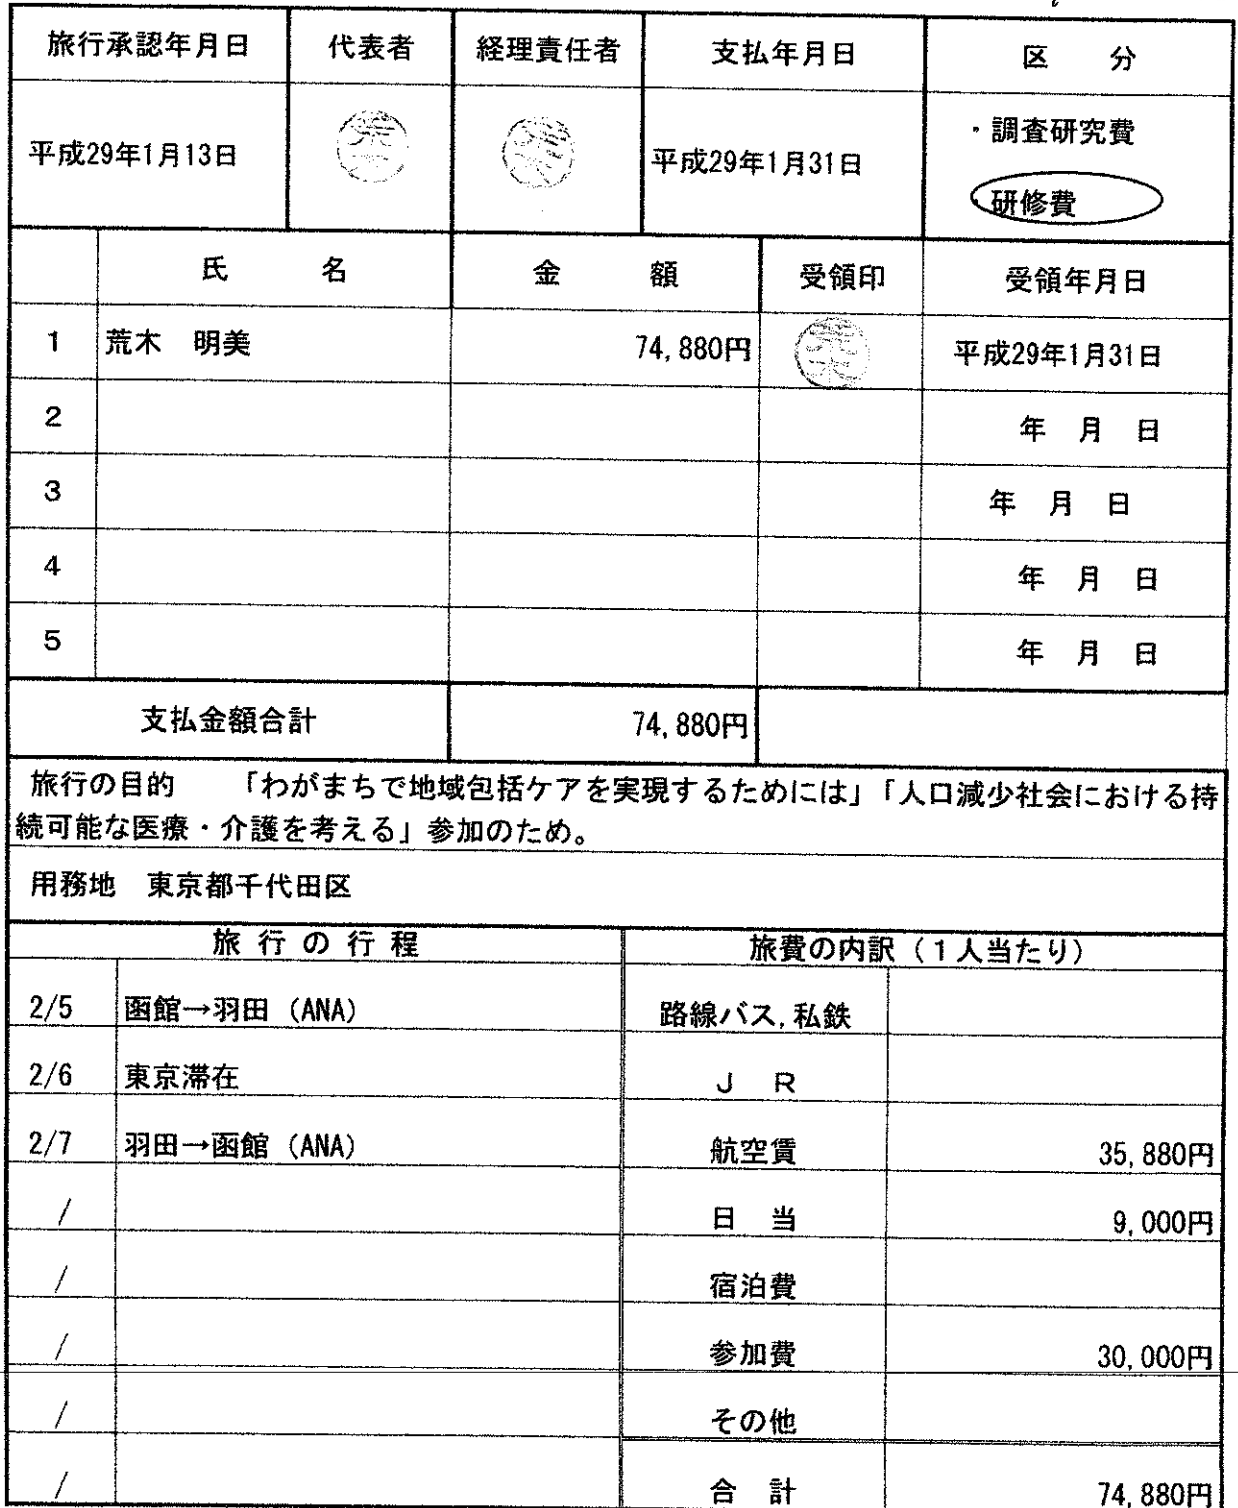 旅行承認年月日 代表者 経理責任者 支払年月日 区 分
平成29年1月13日 荒木 荒木 平成29年1月31日 ・調査研究費
・研修費
氏 名 金 額 受領印 受領年月日
1 荒木 明美 74,880円 荒木 平成29年1月31日
2 年 月 日
3 年 月 日
4 年 月 日
5 年 月 日
支払金額合計 74,880円
旅行の目的 「わがまちで地域包括ケアを実現するためには」「人口減少社会における持
続可能な医療・介護を考える」参加のため。
用務地 東京都千代田区
旅行の行程 旅費の内訳(1人当たり)
2/5 函館→羽田(ANA) 路線バス,私鉄
2/6 東京滞在 J R
2/7 羽田→函館(ANA) 航空賃 35,880円
/ 日 当 9,000円
/ 宿泊費
/ 参加費 30,000円
/ その他
/ 合 計 74,880円